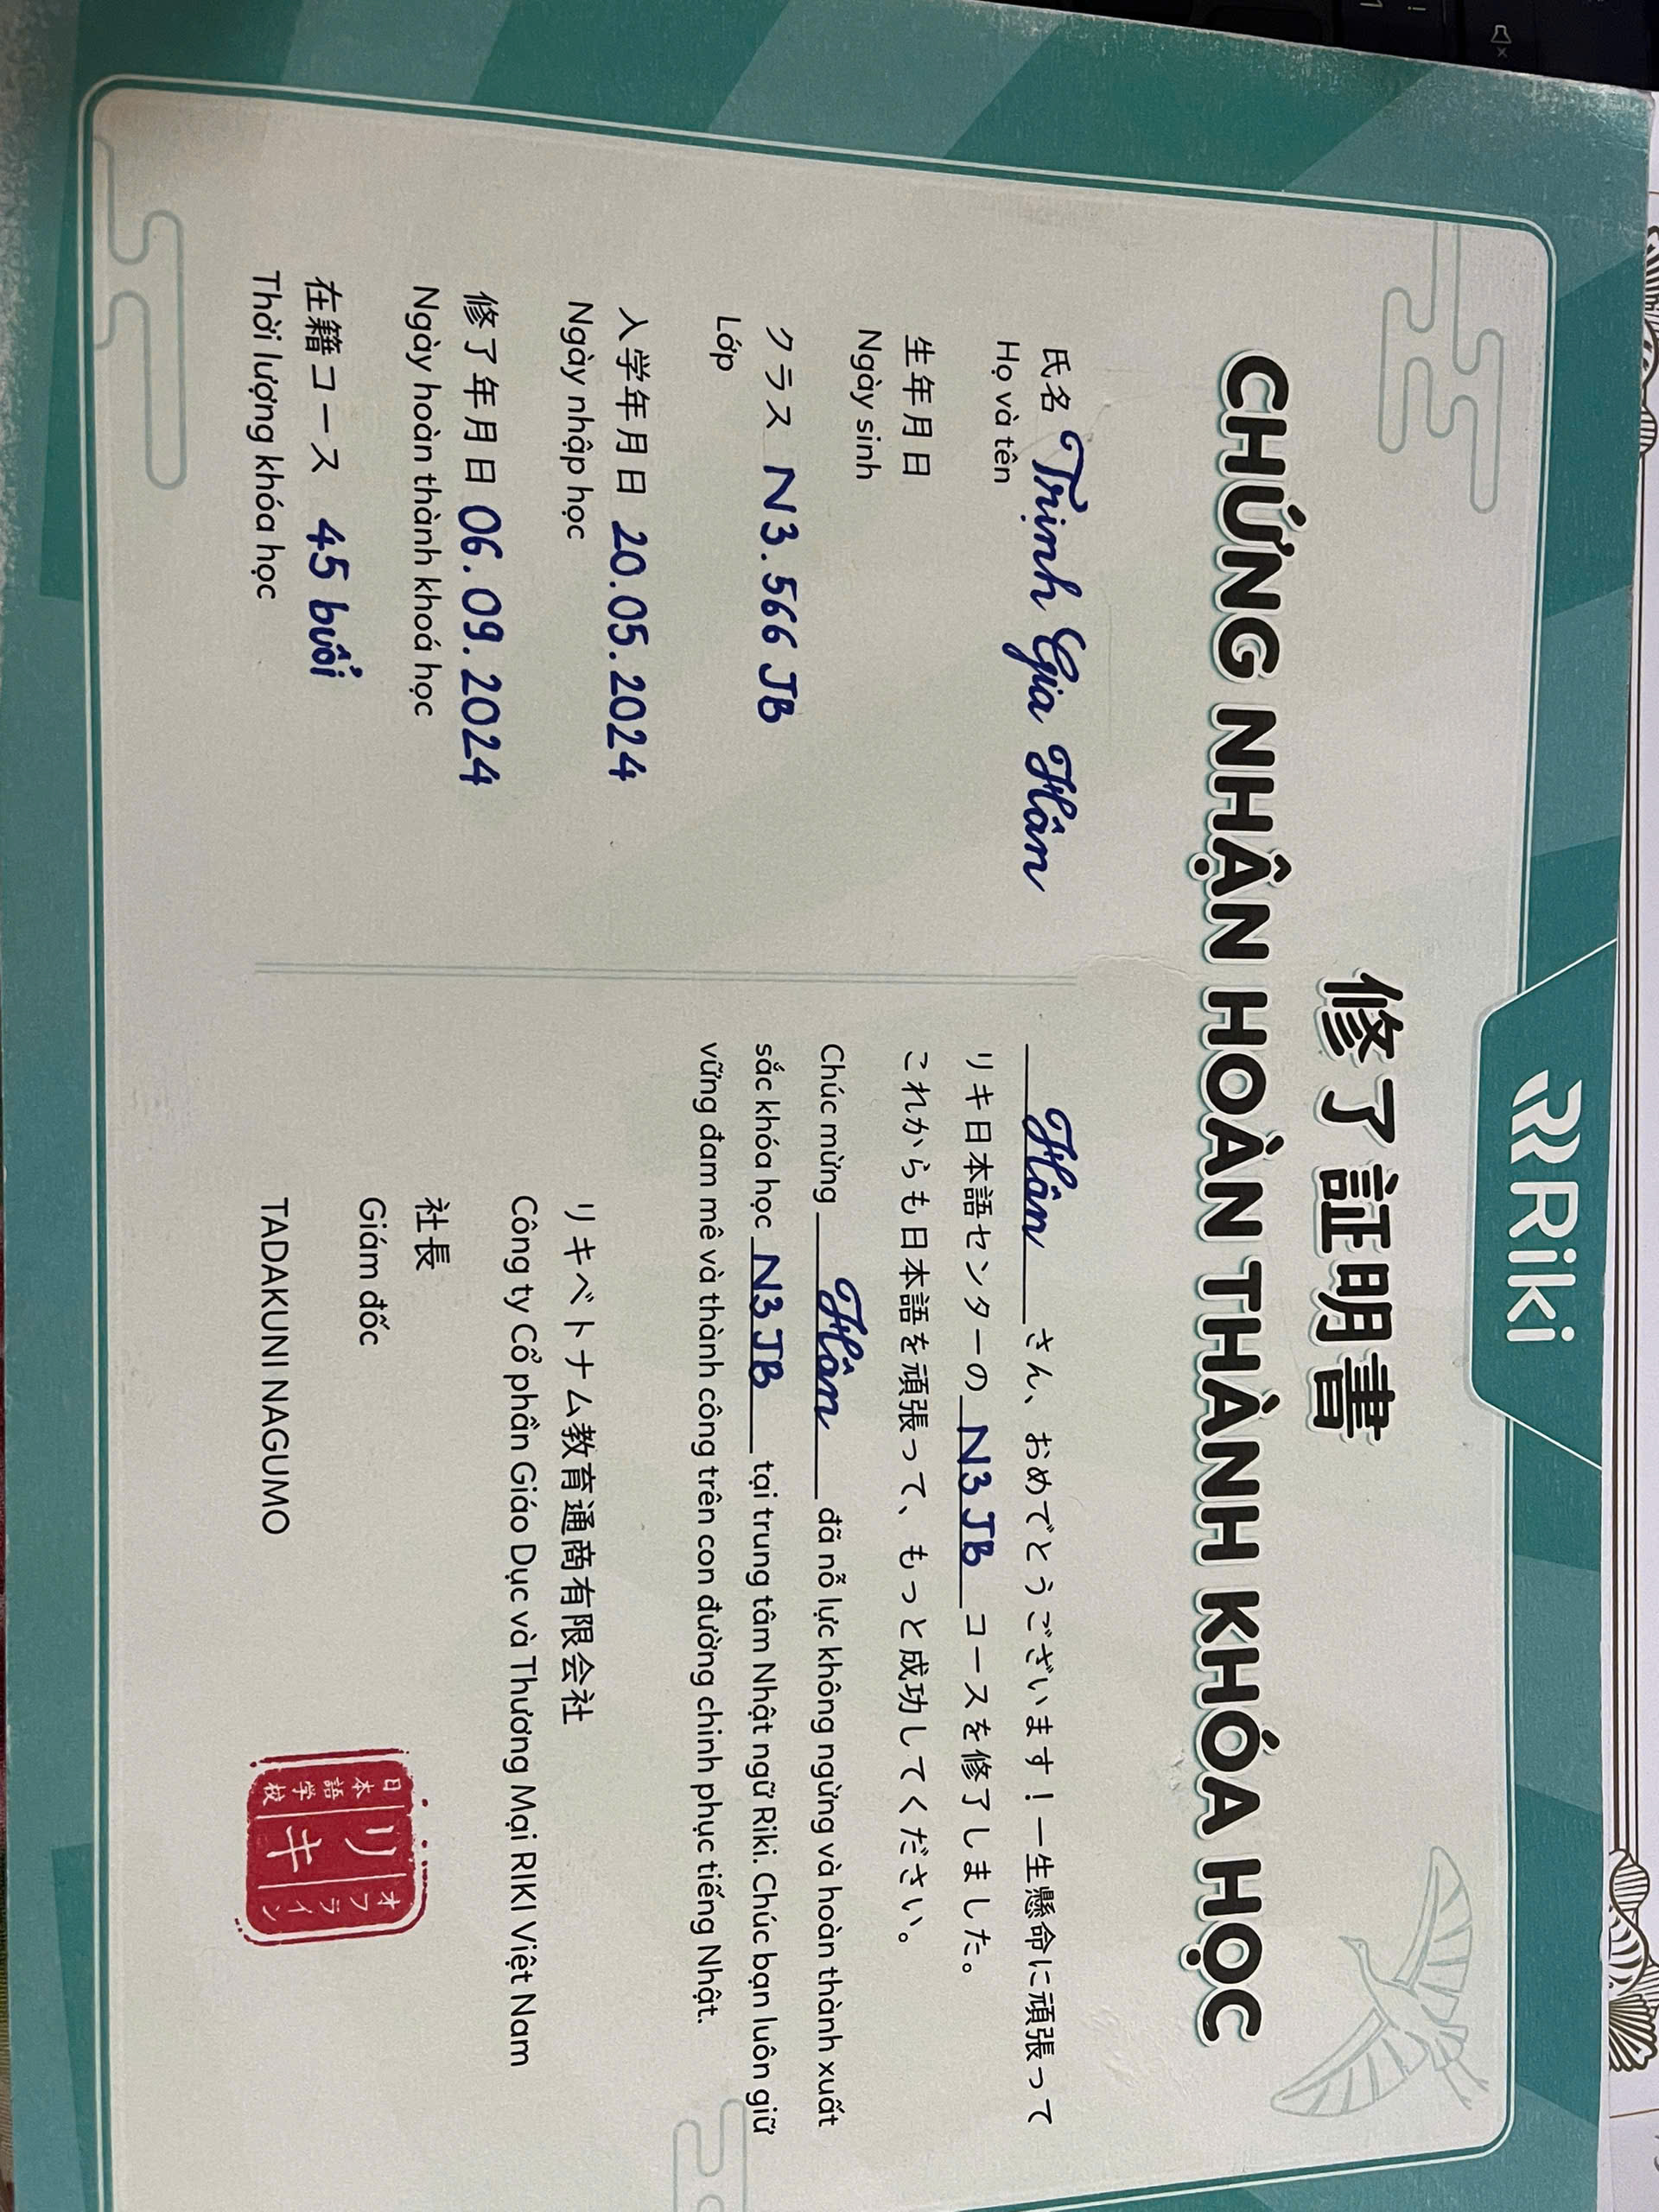 Riki
修了証明書
CHỨNG NHẬN HOÀN THÀNH KHÓA HỌC
氏名 Trịnh Gia Hân
Họ và tên
生年月日
Ngày sinh
クラス N3.566 JB
Lớp
入学年月日 20.05.2024
Ngày nhập học
修了年月日 06.09.2024
Ngày hoàn thành khoá học
在籍コース 45 buổi
Thời lượng khóa học
Hân さん、おめでとうございます！一生懸命に頑張って
リキ日本語センターの N3 JB コースを修了しました。
これからも日本語を頑張って、もっと成功してください。
Chúc mừng Hân đã nỗ lực không ngừng và hoàn thành xuất
sắc khóa học N3 JB tại trung tâm Nhật ngữ Riki. Chúc bạn luôn giữ
vững đam mê và thành công trên con đường chinh phục tiếng Nhật.
リキベトナム教育通商有限会社
Công ty Cổ phần Giáo Dục và Thương Mại RIKI Việt Nam
社長
Giám đốc
TADAKUNI NAGUMO
オフライン
リキ
日本語学校
!
1